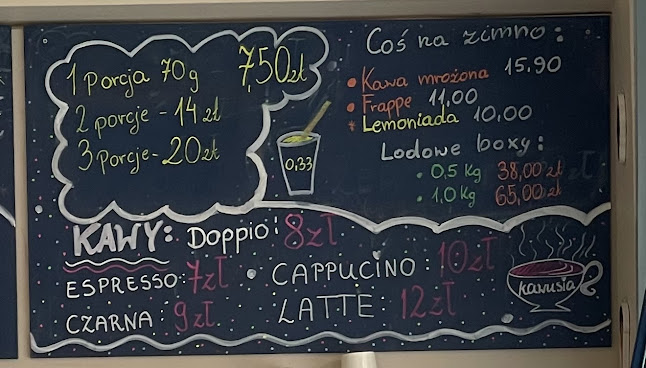 1 Porcja 70g 7,50zł
2 porcje - 14 zł
3 Porcje - 20zł
0,33
Coś na zimno:
• Kawa mrożona 15.90
• Frappe 11,00
• Lemoniada 10,00
Lodowe boxy:
• 0,5 Kg 38,00 zł
• 1,0 Kg 65,00 zł
KAWY: Doppio: 8zł
ESPRESSO: 7zł • CAPPUCINO: 10zł
CZARNA: 9zł LATTE: 12zł
kawusia